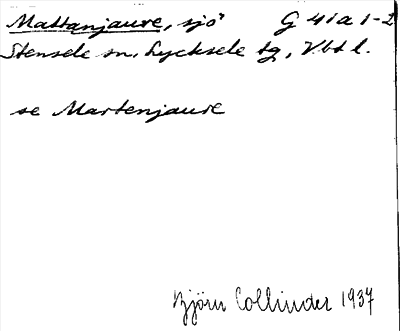 Mattanjaure, sjö G 41a 1-2
Stensele sn, Lycksele tg, Vbtl.
se Martenjaure
Björn Collinder 1937